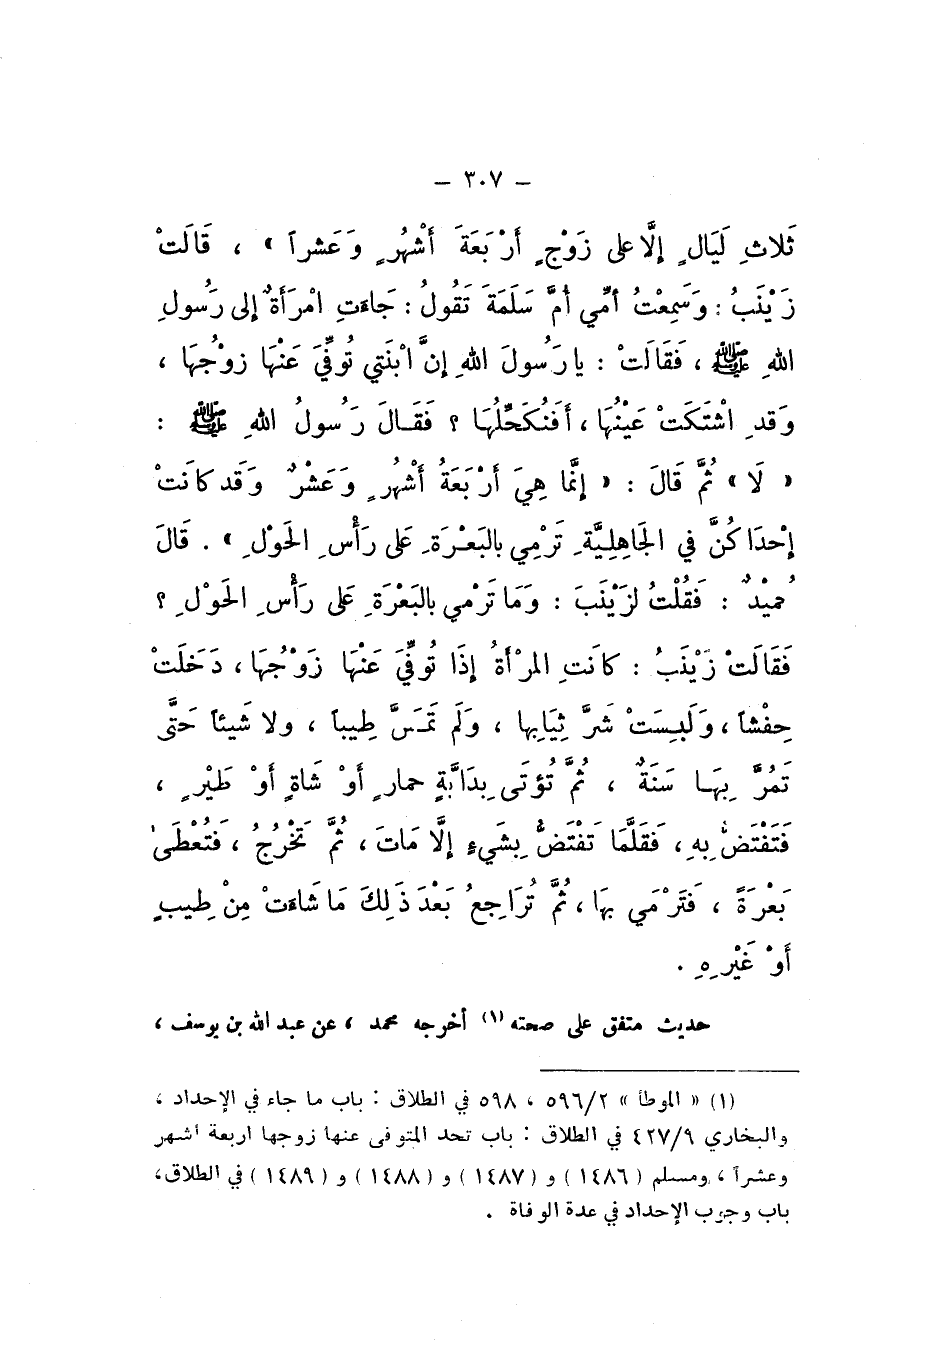 – ٣٠٧ –
ثَلاثِ لَيَالٍ إِلَّا على زَوْجٍ أَرْبَعَةَ أَشْهُرٍ وَعَشْراً » ، قَالَتْ
زَيْنَبُ : وَسَمِعْتُ أُمِّي أُمَّ سَلَمَةَ تَقُولُ : جَاءَتِ امْرَأَةٌ إلى رَسُولِ
اللهِ ﷺ ، فَقَالَتْ : يا رَسُولَ اللهِ إنَّ ابْنَتي تُوفِّيَ عَنْهَا زوْجُهَا ،
وَقدِ اشْتَكَتْ عَيْنُهَا ، أَفَنُكَحِّلُهَا ؟ فَقَالَ رَسُولُ اللهِ ﷺ :
« لَا » ثُمَّ قَالَ : « إنَّمَا هِيَ أَرْبَعَةُ أَشْهُرٍ وَعَشْرٌ وَقَد كَانَتْ
إحْدَاكُنَّ في الجَاهِلِيَّةِ تَرْمِي بالبَعْرَةِ عَلى رَأْسِ الحَوْلِ » . قَالَ
حُمَيْدٌ : فَقُلْتُ لزَيْنَبَ : وَمَا تَرْمي بالبَعْرَةِ عَلى رَأْسِ الحَوْلِ ؟
فَقَالَتْ زَيْنَبُ : كانَتِ المرْأَةُ إذَا تُوفِّيَ عَنْهَا زَوْجُهَا ، دَخَلَتْ
حِفْشاً ، وَلَبِسَتْ شَرَّ ثِيَابِها ، وَلَم تَمَسَّ طِيباً ، ولا شَيئاً حَتَّى
تَمُرَّ بِهَا سَنَةٌ ، ثُمَّ تُؤتَى بِدَابَّةٍ حمارٍ أَوْ شَاةٍ أَوْ طَيْرٍ ،
فَتَفْتَضُّ بِهِ ، فَقَلَّمَا تَفْتَضُّ بِشَيءٍ إلَّا مَاتَ ، ثُمَّ تَخْرُجُ ، فَتُعْطَى
بَعْرَةً ، فَتَرْمَي بهَا ، ثُمَّ تُرَاجِعُ بَعْدَ ذَلِكَ مَا شَاءَتْ مِنْ طِيبٍ
أَوْ غَيْرِهِ .
حديث متفق على صحته (١) أخرجه محمد ، عن عبد الله بن يوسف ،
(١) « الموطأ » ٥٩٦/٢ ، ٥٩٨ في الطلاق : باب ما جاء في الإحداد ،
والبخاري ٤٢٧/٩ في الطلاق : باب تحد المتوفى عنها زوجها اربعة أشهر
وعشراً ، ومسلم ( ١٤٨٦ ) و ( ١٤٨٧ ) و ( ١٤٨٨ ) و ( ١٤٨٩ ) في الطلاق ،
باب وجوب الإحداد في عدة الوفاة .